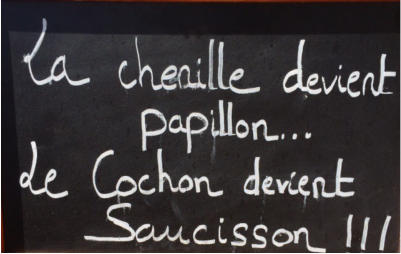 La chenille devient
papillon...
Le Cochon devient
Saucisson !!!